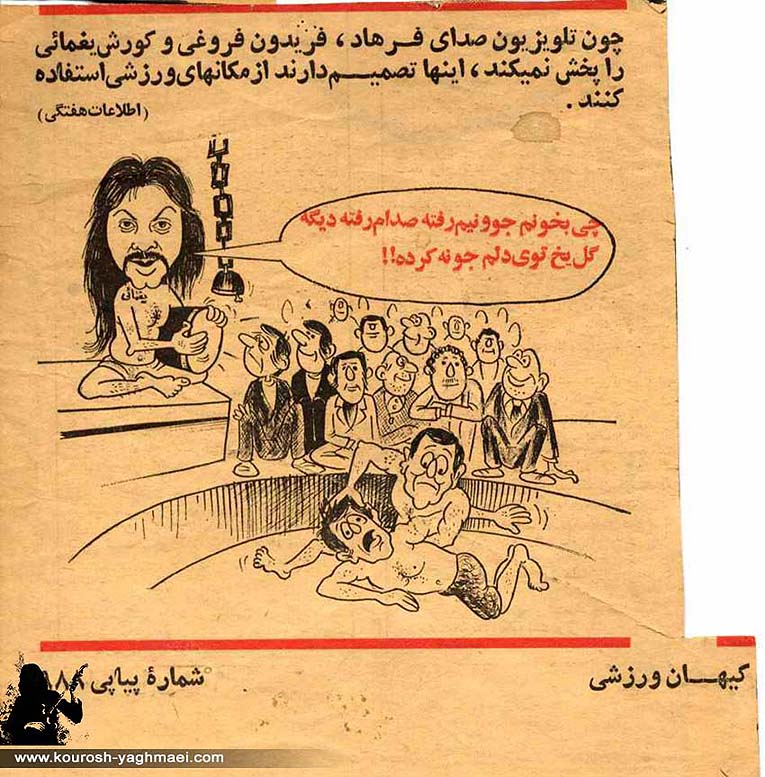 چون تلویزیون صدای فرهاد، فریدون فروغی و کورش یغمائی
را پخش نمیکند، اینها تصمیم دارند از مکانهای ورزشی استفاده
کنند.
(اطلاعات هفتگی)
چی بخونم جوونیم رفته صدام رفته دیگه
گل یخ توی دلم جونه کرده!!
کیهان ورزشی
شمارهٔ پیاپی
www.kourosh-yaghmaei.com